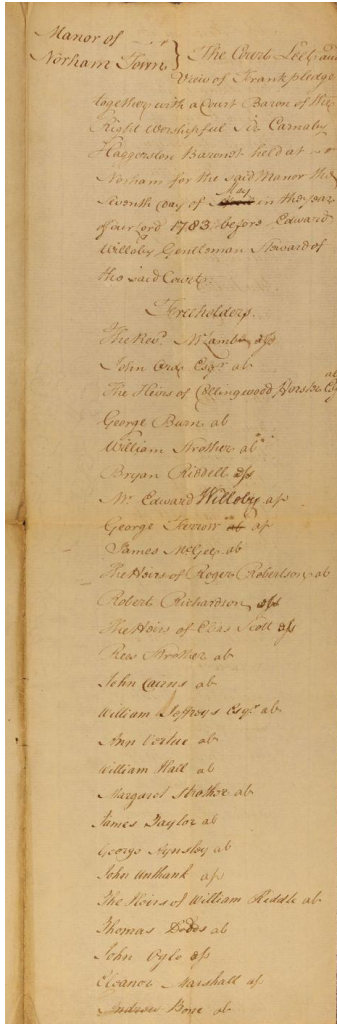 Manor of
Norham Town } The Court Leet and
View of Frankpledge
together with a Court Baron of the
Right Worshipful Sir Carnaby
Haggerston Baronet held at
Norham for the said Manor the
Seventh day of May in the year
of our Lord 1783 before Edward
Willoby Gentleman Steward of
the said Court.
Freeholders.
The Revd. Mr. Lambe
John Esqr. ab
The Heirs of Collingwood Forster Esq ab
George Burn ab
William Strother ab
Bryan Riddell aps
Mr. Edward Willoby aps
George ab aps
James McGey ab
The Heirs of Roger Robertson ab
Robert Richardson aps
The Heirs of Elias Scott aps
Strother ab
John Cairns ab
William Jeffreys Esqr. ab
Ann Vertue ab
William Hall ab
Margaret Strother ab
James Taylor ab
George Aynsley ab
John Unthank aps
The Heirs of William Riddle ab
Thomas Dodds ab
John Ogle aps
Eleanor Marshall aps
Andrew Bone ab